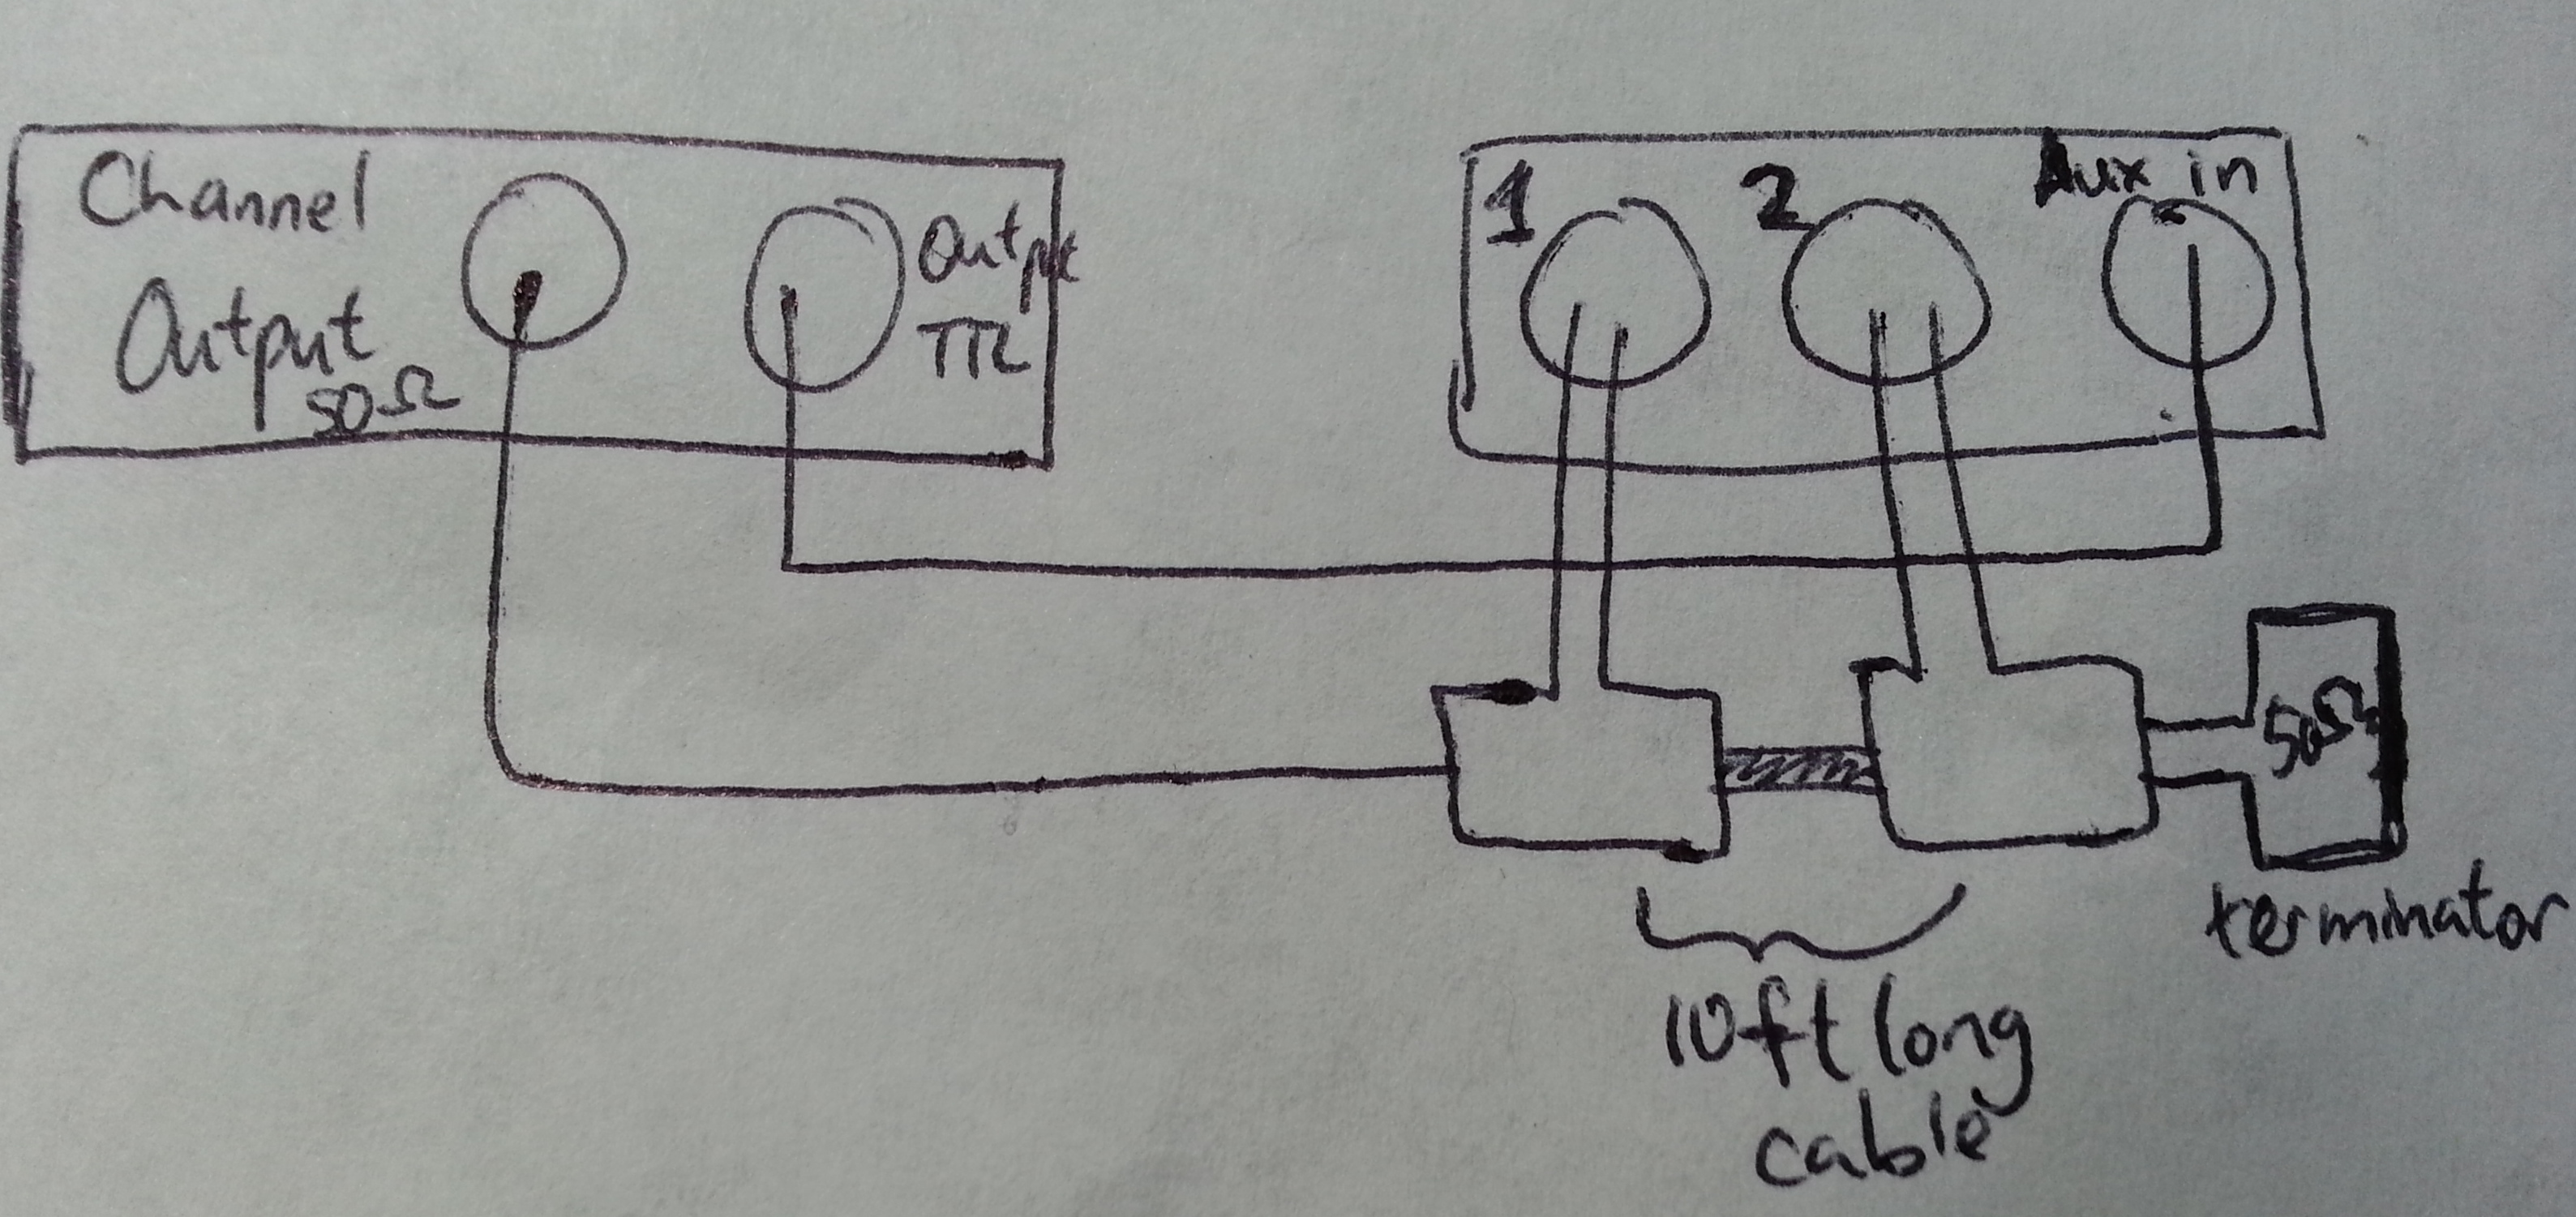 Channel
Output
50Ω
Output
TTL
1
2
Aux in
50Ω
terminator
10ft long
cable